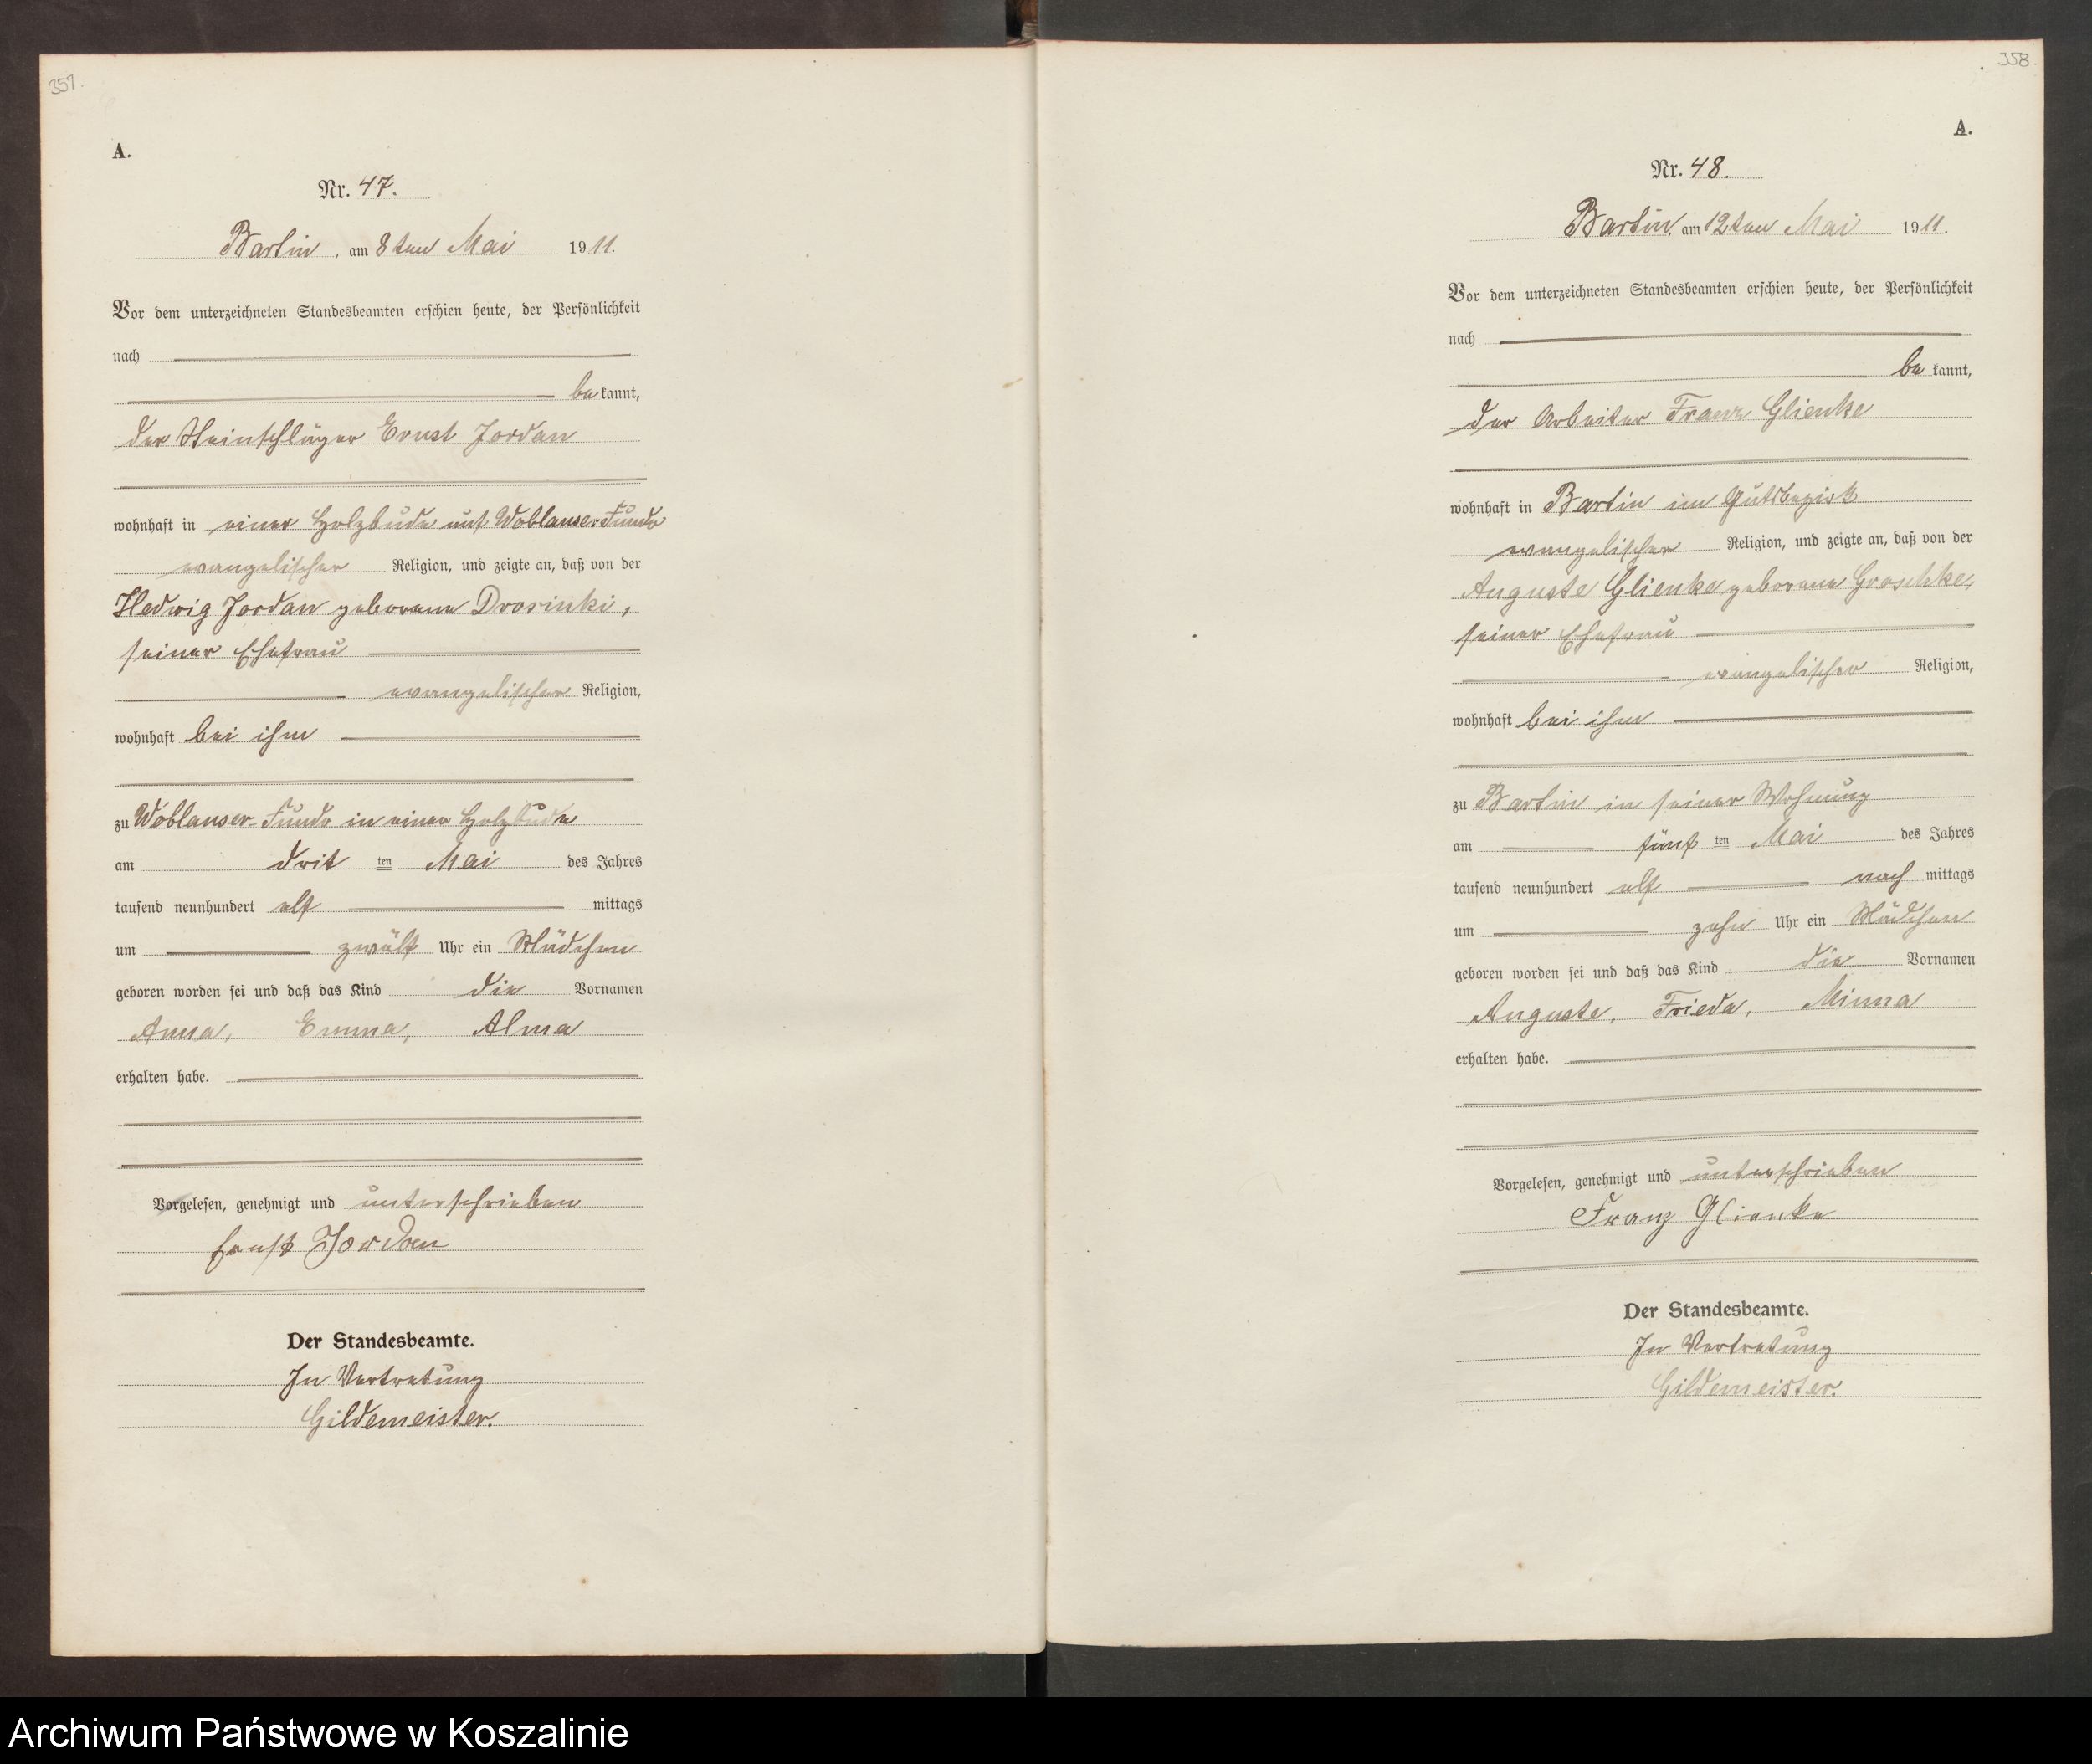 357.
A.
Nr. 47.
Bartin, am 8ten Mai 1911.
Vor dem unterzeichneten Standesbeamten erschien heute, der Persönlichkeit
nach
bekannt,
der Steinschläger Ernst Jordan
wohnhaft in einer Holzbude auf Woblanser Fundo
evangelischer Religion, und zeigte an, daß von der
Hedwig Jordan geborene Drosinski,
seiner Ehefrau
evangelischer Religion,
wohnhaft bei ihm
zu Woblanser-Fundo in einer Holzbude
am dritten Mai des Jahres
tausend neunhundert elf mittags
um zwölf Uhr ein Mädchen
geboren worden sei und daß das Kind die Vornamen
Anna, Emma, Alma
erhalten habe.
Vorgelesen, genehmigt und unterschrieben
Ernst Jordan
Der Standesbeamte.
In Vertretung
Gildemeister.
358.
A.
Nr. 48.
Bartin, am 12ten Mai 1911.
Vor dem unterzeichneten Standesbeamten erschien heute, der Persönlichkeit
nach
bekannt,
der Arbeiter Franz Glienke
wohnhaft in Bartin im Gutsbezirk
evangelischer Religion, und zeigte an, daß von der
Auguste Glienke geborene Groschke,
seiner Ehefrau
evangelischer Religion,
wohnhaft bei ihm
zu Bartin in seiner Wohnung
am fünften Mai des Jahres
tausend neunhundert elf nachmittags
um zehn Uhr ein Mädchen
geboren worden sei und daß das Kind die Vornamen
Auguste, Frieda, Minna
erhalten habe.
Vorgelesen, genehmigt und unterschrieben
Franz Glienke
Der Standesbeamte.
In Vertretung
Gildemeister.
Archiwum Państwowe w Koszalinie